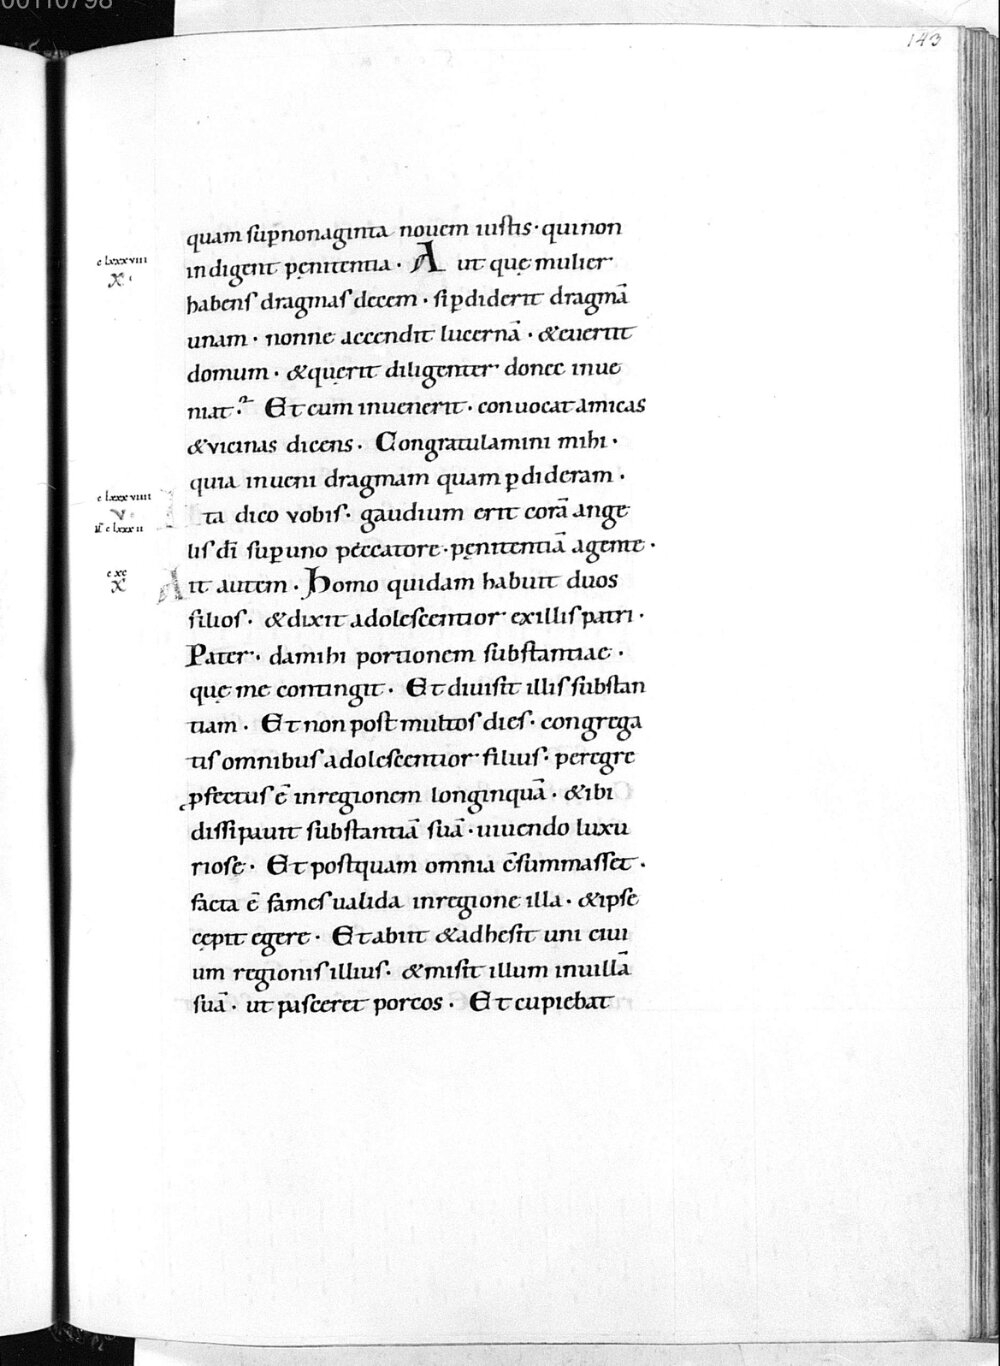 00110798
143
quam sup̱ nonaginta novem iustis · qui non
c lxxxviii
X ·
indigent pęnitentia · Aut quę mulier
habens dragmas decem · si ꝑdiderit dragmā
unam · nonne accendit lucernā · &evertit
domum · &quęrit diligenter · donec inve
niat · Et cum invenerit · convocat amicas
&vicinas dicens · Congratulamini mihi ·
quia inveni dragmam quam ꝑdideram ·
c lxxxviiii
v ·
c lxxxii
Ita dico vobis · gaudium erit corā ange
lis dī sup̱ uno peccatore · pęnitentiā agente ·
c xc
X
Ait autem · Homo quidam habuit duos
filios · &dixit adolescentior ex illis patri ·
Pater · da mihi portionem substantiae ·
quę me contingit · Et divisit illis substan
tiam · Et non post multos dies · congrega
tis omnibus adolescentior filius · peregre
ꝓfectus ē in regionem longinquā · &ibi
dissipavit substantiā suā · vivendo luxu
riose · Et postquam omnia c̄summasset ·
facta ē fames valida in regione illa · &ipse
cępit egere · Et abiit &adhesit uni civi
um regionis illius · &misit illum in villā
suā · ut pasceret porcos · Et cupiebat